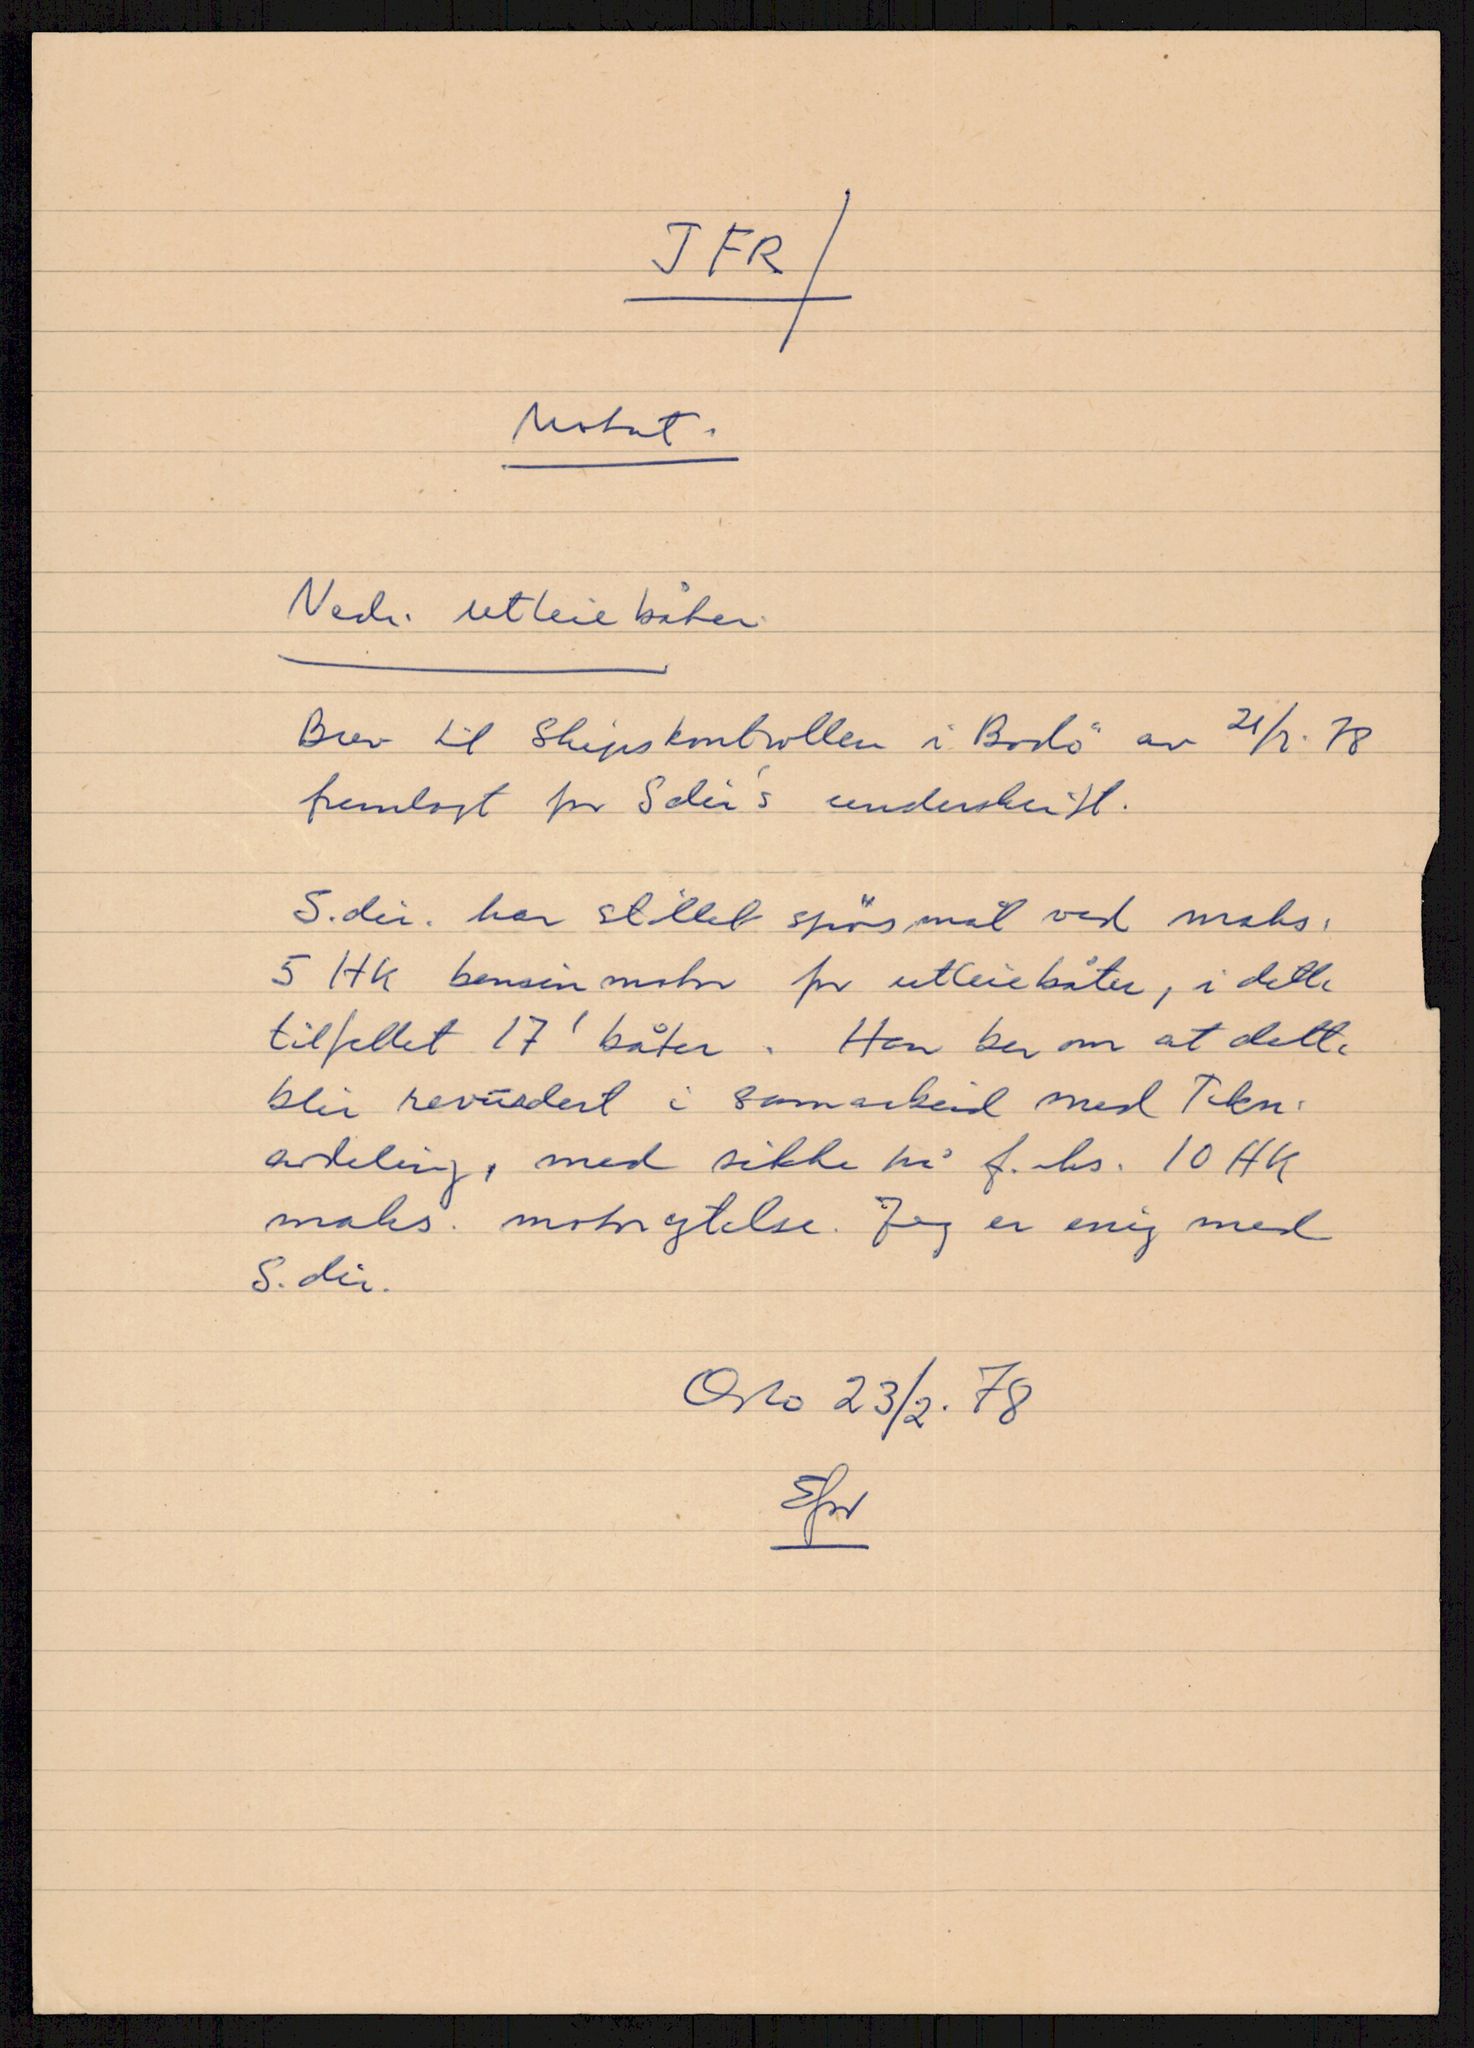 JFR/
Notat.
Vedr. utleiebåter.
Brev til Skipskontrollen i Bodö av 21/2. 78
fremlagt for Sdir's underskrift.
S.dir. har stillet spörsmål ved maks.
5 HK bensinmotor for utleiebåter, i dette
tilfellet 17' båter. Han ber om at dette
blir revurdert i samarbeid med Tekn.
avdeling, med sikte på f.eks. 10 HK
maks. motorytelse. Jeg er enig med
S.dir.
Oslo 23/2. 78